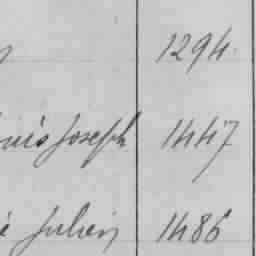 1294
Joseph 1447
Julien 1486